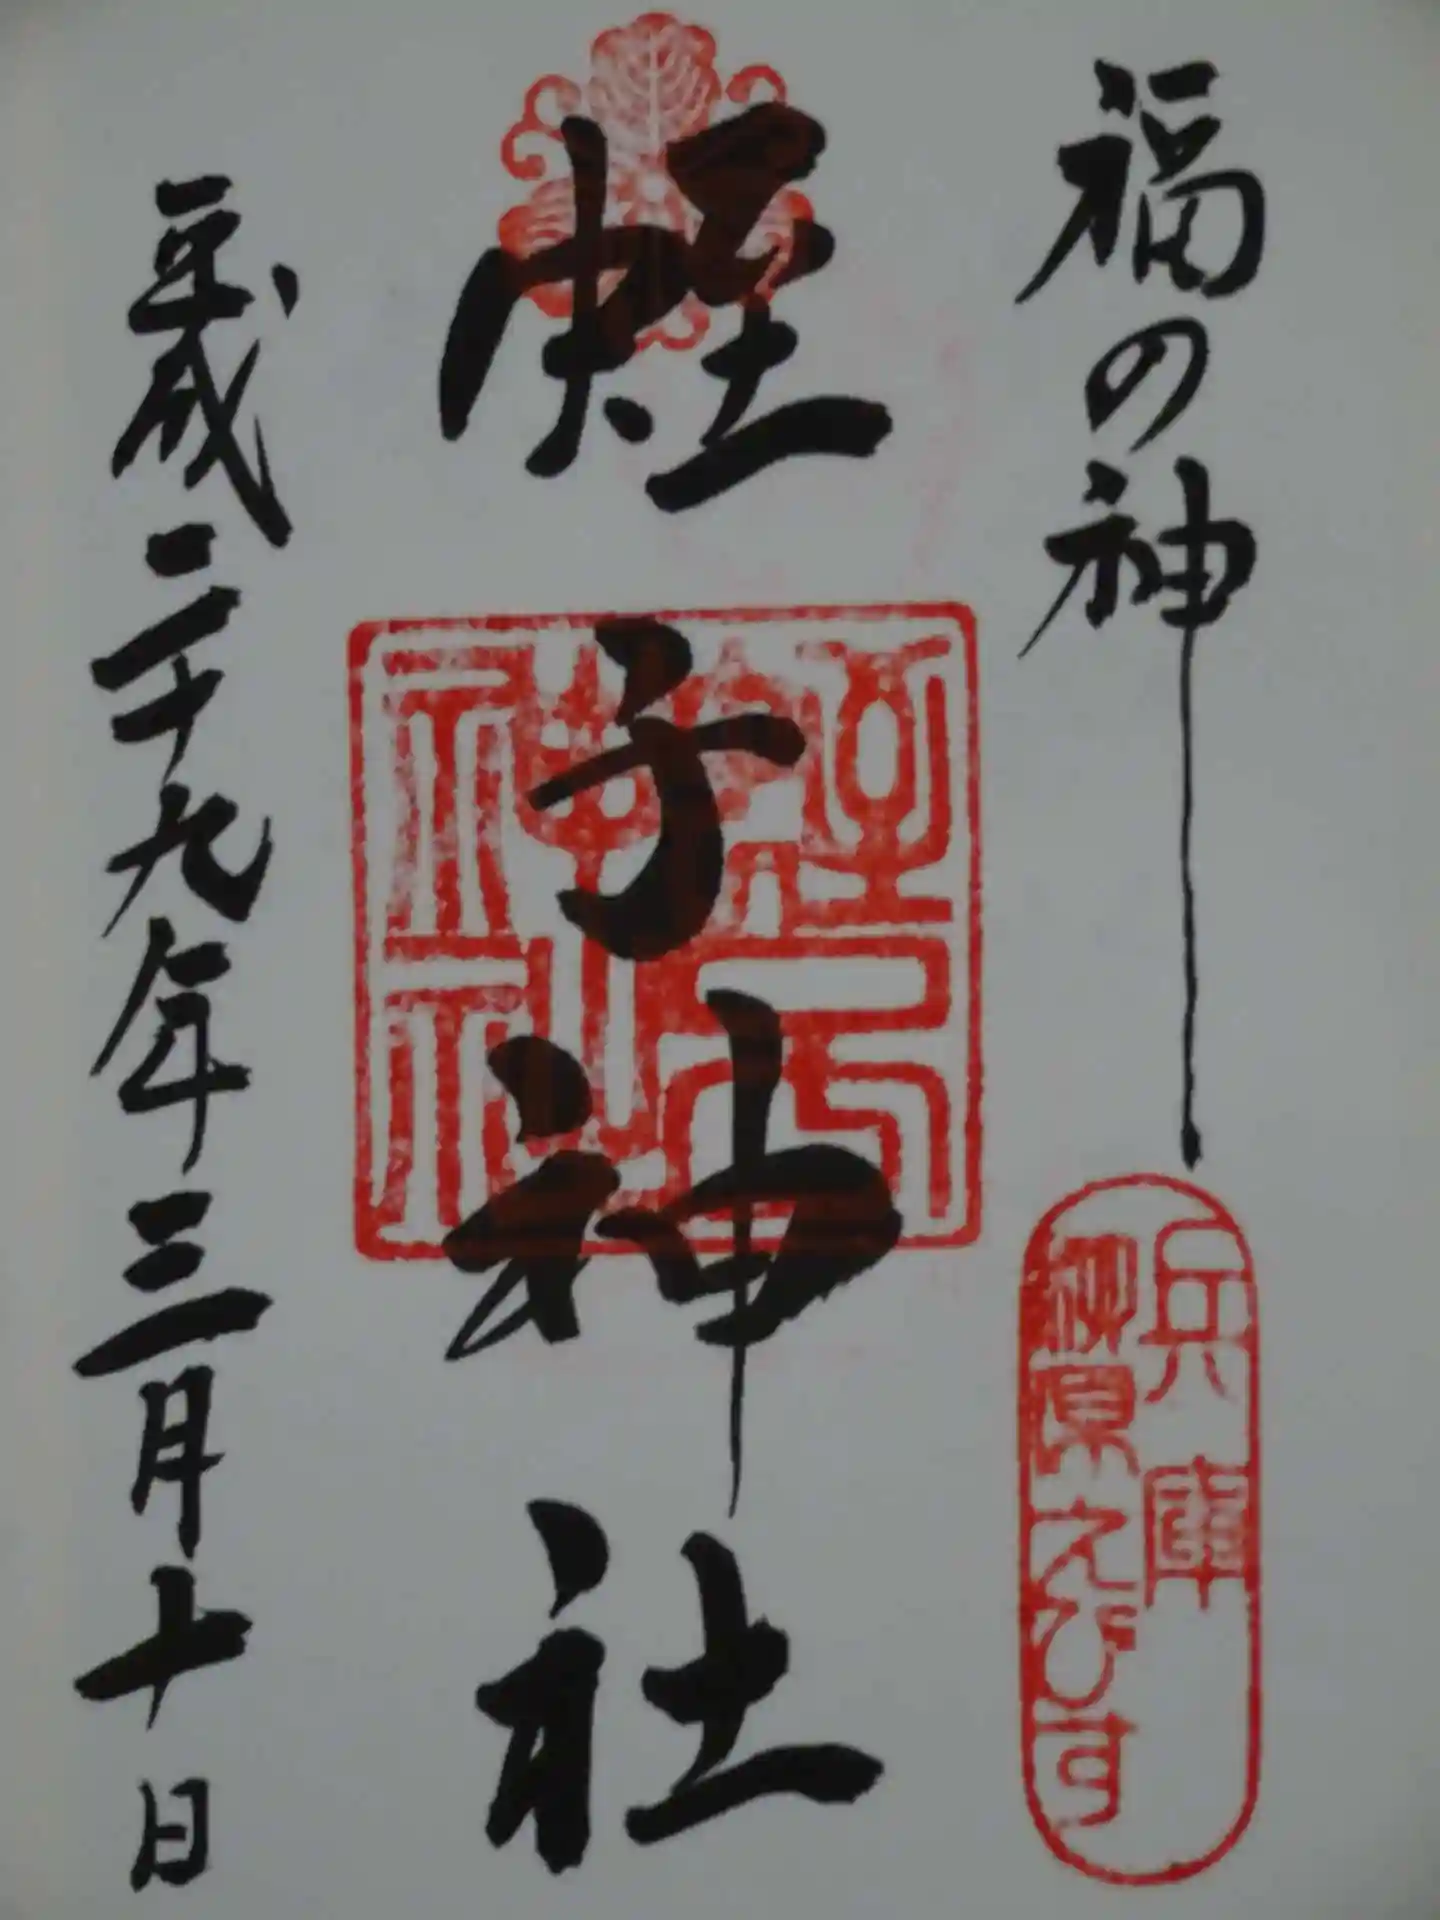 福の神
兵庫
柳原えびす
蛭子神社
蛭子
神社
平成二十九年三月十日